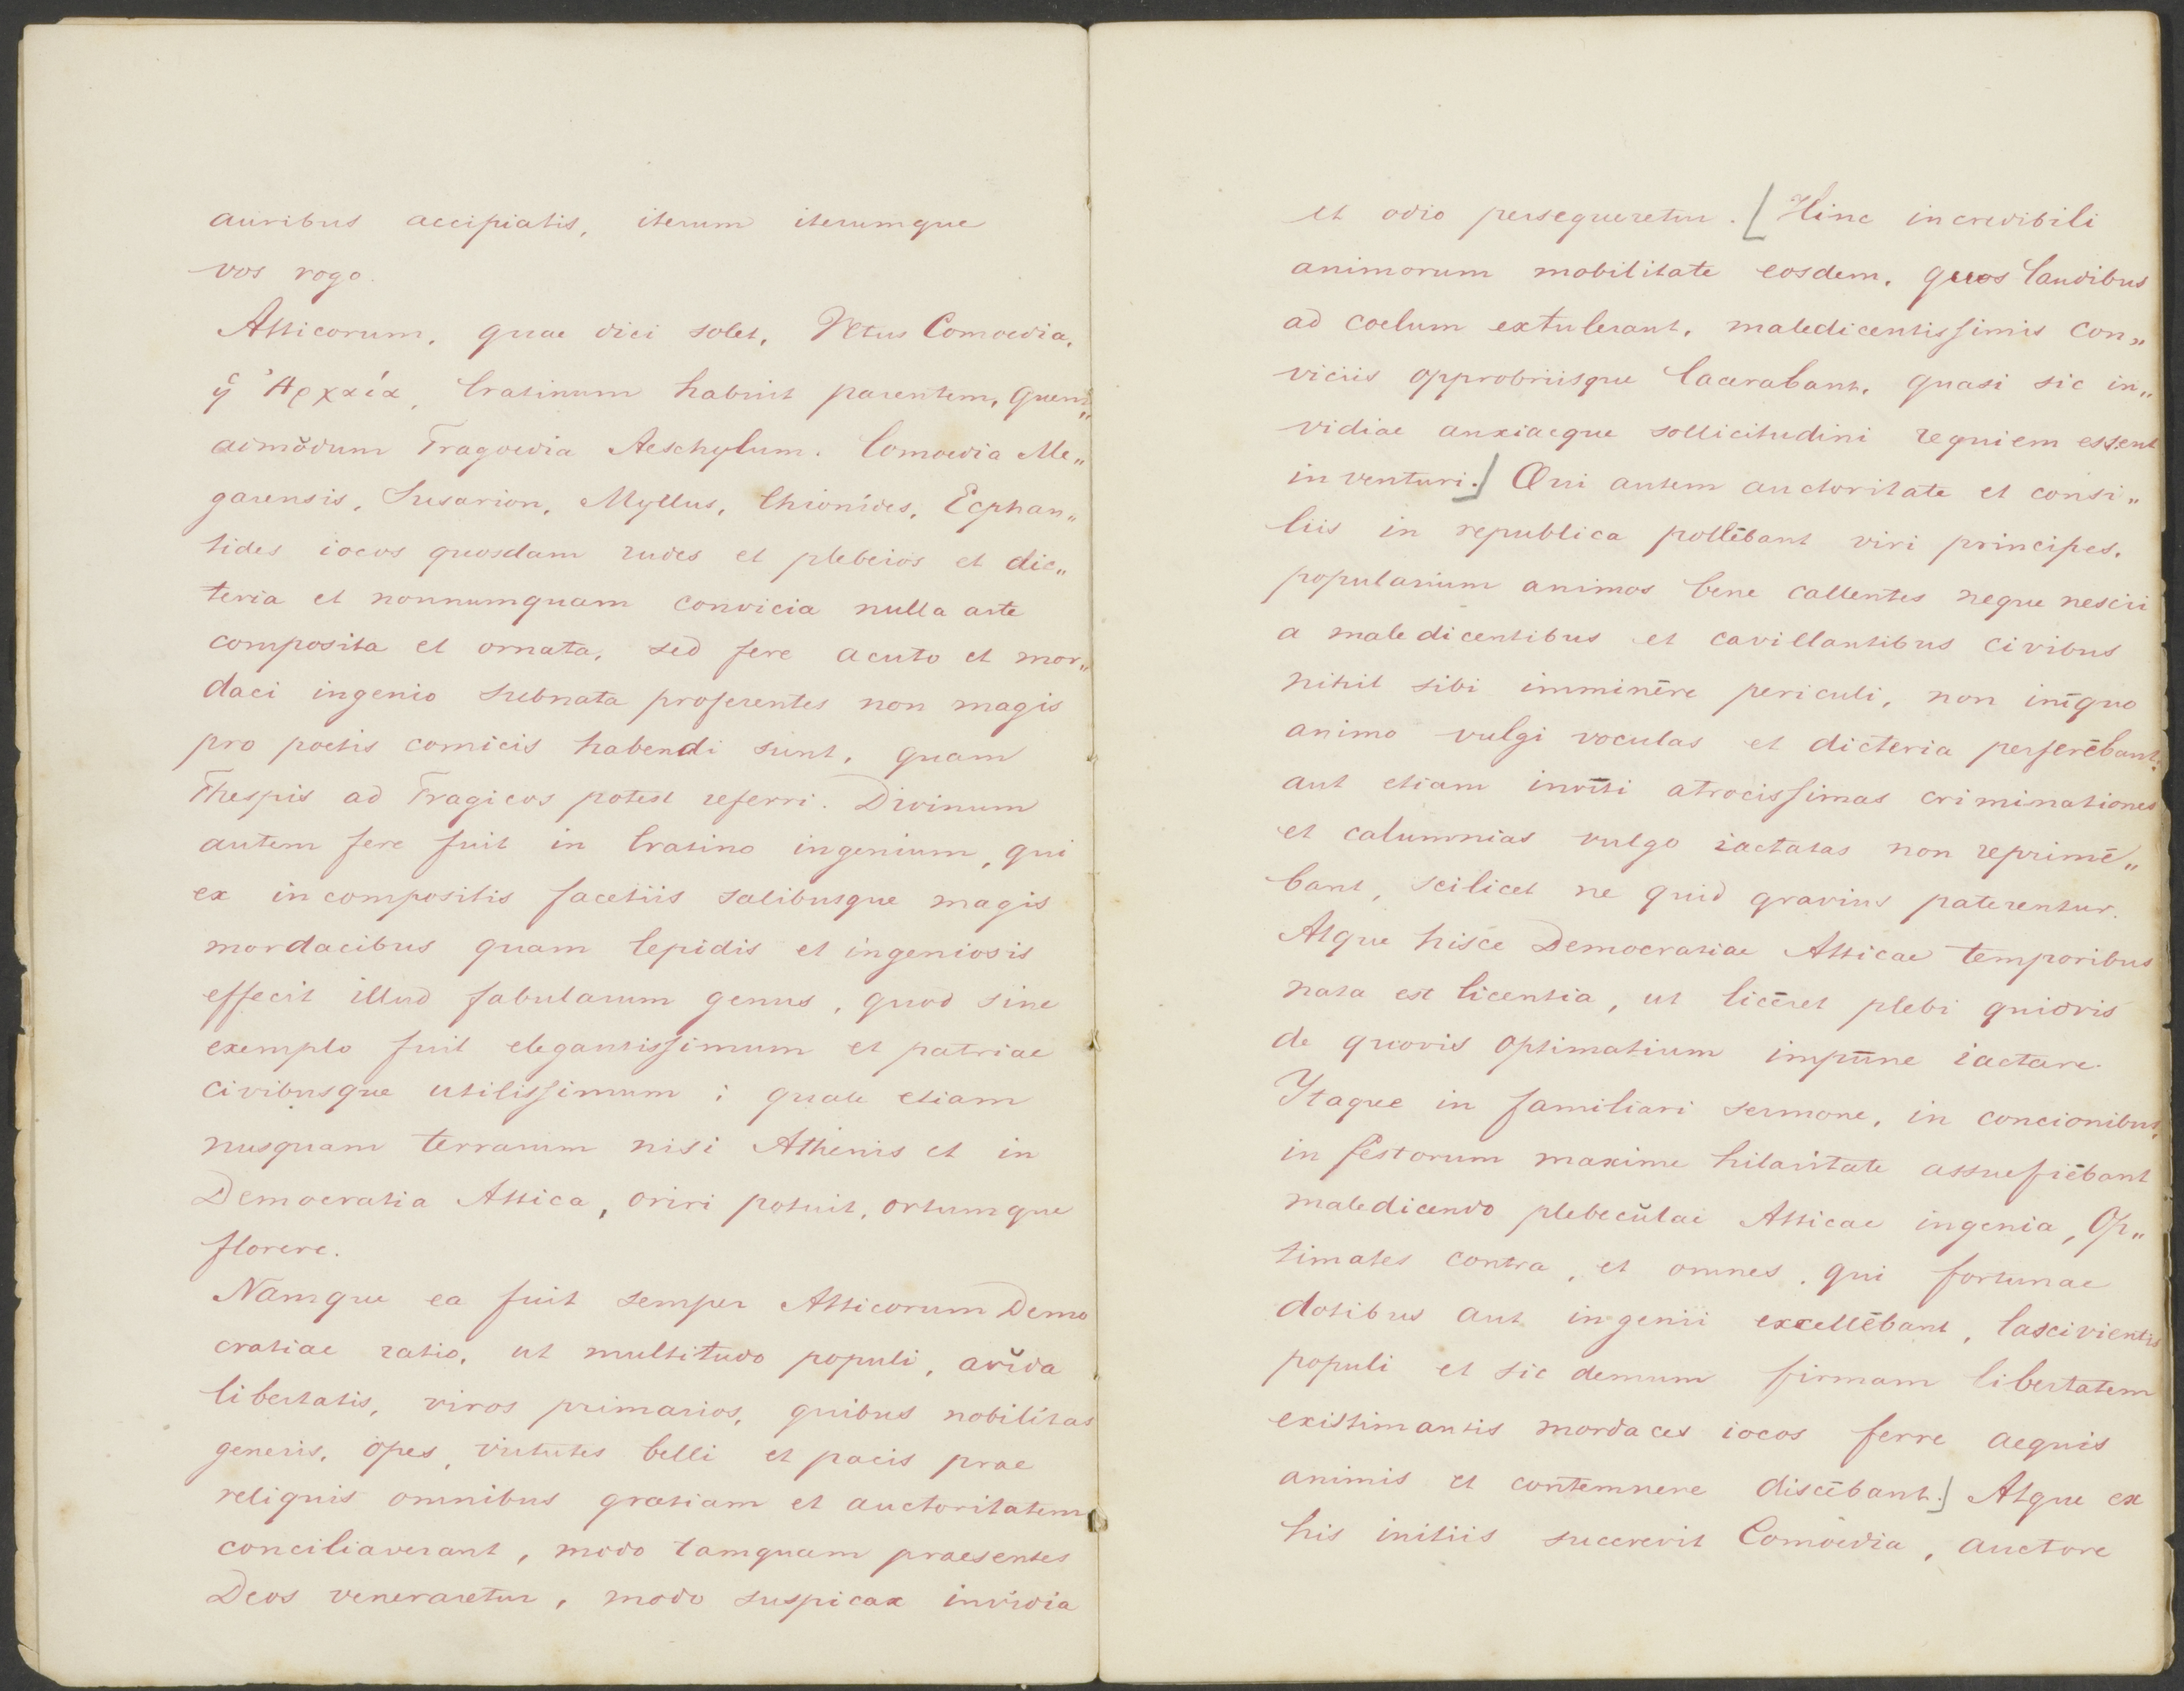 auribus accipiatis, iterum iterumque
vos rogo.
Atticorum, quae dici solet, Vetus Comoedia,
ἡ Ἀρχαία, Cratinum habuit parentem, quem„
admŏdum Tragoedia Aeschylum. Comoedia Me„
garensis, Susarion, Myllus, Chionídes, Ecphan„
tides iocos quosdam rudes et plebeios et dic„
teria et nonnumquam convicia nulla arte
composita et ornata, sed fere acuto et mor„
daci ingenio subnata proferentes non magis
pro poetis comicis habendi sunt, quam
Thespis ad Tragicos potest referri. Divinum
autem fere fuit in Cratino ingenium, qui
ex incompositis facetiis salibusque magis
mordacibus quam lepidis et ingeniosis
effecit illud fabularum genus, quod sine
exemplo fuit elegantissimum et patriae
civibusque utilissimum; quale etiam
nusquam terrarum nisi Athenis et in
Democratia Attica, oriri potuit, ortumque
florere.
Namque ea fuit semper Atticorum Demo
cratiae ratio, ut multitudo populi, avĭda
libertatis, viros primarios, quibus nobilitas
generis, opes, virtutes belli et pacis prae
reliquis omnibus gratiam et auctoritatem
conciliaverant, modo tamquam praesentes
Deos veneraretur, modo suspicax invidia
et odio persequeretur. [Hinc incredibili
animorum mobilitate eosdem, quos laudibus
ad coelum extulerant, maledicentissimis con„
viciis opprobriisque lacerabant, quasi sic in„
vidiae anxiaeque sollicitudini requiem essent
inventuri.] Qui autem auctoritate et consi„
liis in republica pollēbant viri principes,
popularium animos bene callentes neque nescii
a maledicentibus et cavillantibus civibus
nihil sibi imminēre periculi, non inīquo
animo vulgi voculas et dicteria perferēbant,
aut etiam invīti atrocissimas criminationes
et calumnias vulgo iactatas non reprimē„
bant, scilicet ne quid gravius paterentur.
Atque hisce Democratiae Atticae temporibus
nata est licentia, ut licēret plebi quidvis
de quovis Optimatium impūne iactare.
Itaque in familiari sermone, in concionibus,
in festorum maxime hilaritate assuefiēbant
maledicendo plebecŭlae Atticae ingenia, Op„
timates contra, et omnes, qui fortunae
dotibus aut ingenii excellēbant, lascivientis
populi et sic demum firmam libertatem
existimantis mordaces iocos ferre aequis
animis et contemnere discēbant.] Atque ex
his initiis succrevit Comoedia, auctore